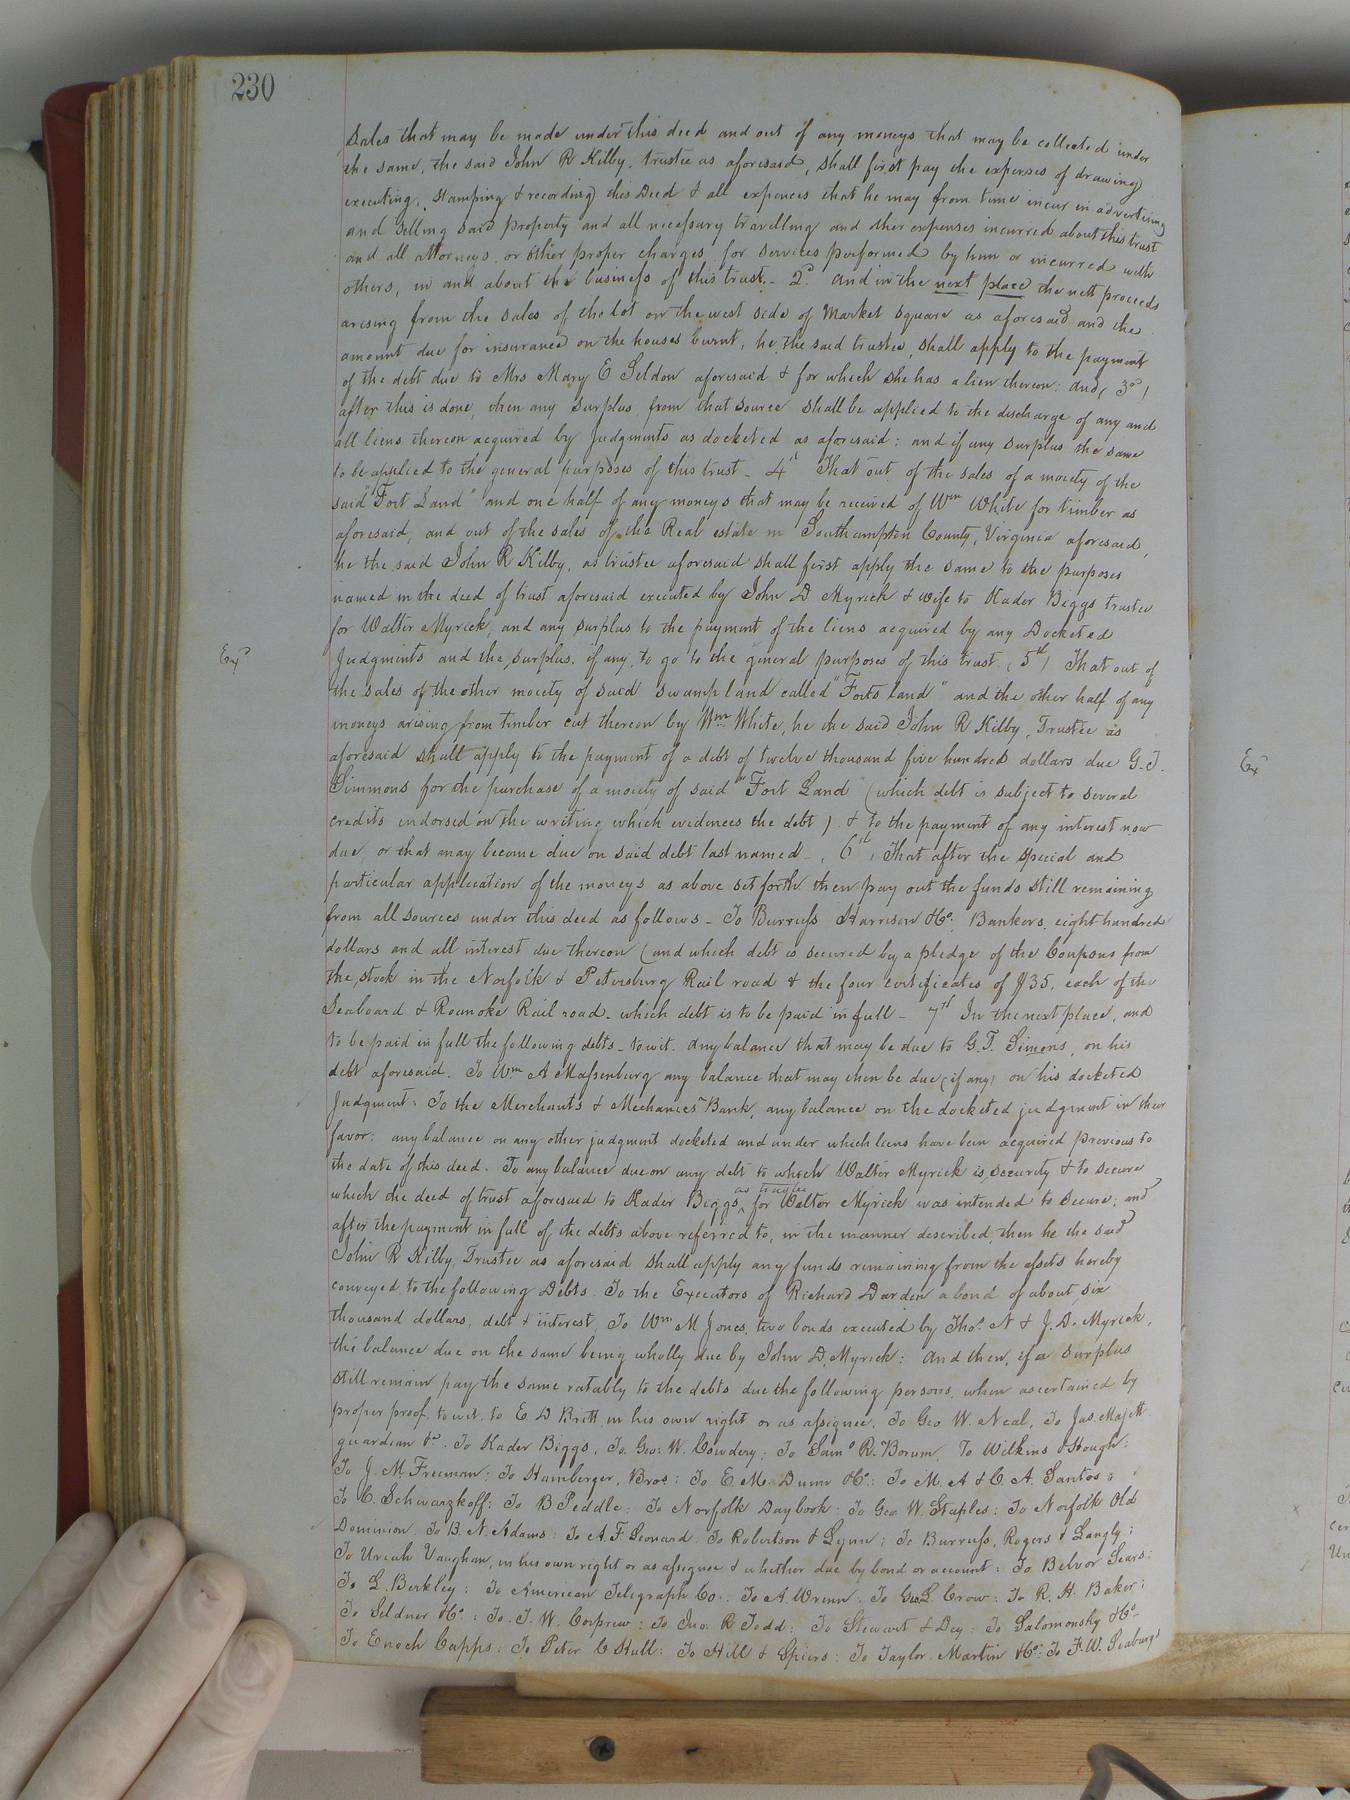 230
Sales that may be made under this deed and out of any moneys that may be collected under
the same, the said John R Kilby, trustee as aforesaid, shall first pay the expenses of drawing
executing, stamping & recording this Deed & all expences that he may from time incur in advertising
and selling said property and all necessary travelling and other expenses incurred about this trust
and all attorneys, or other proper charges, for services performed by him or incurred with
others, in and about the business of this trust. - 2d And in the next place the nett proceeds
arising from the sales of the lot on the west side of Market Square as aforesaid and the
amount due for insurance on the houses burnt, he the said trustee, shall apply to the payment
of the debt due to Mrs Mary E Seldon aforesaid & for which she has a lien thereon: and (3d)
after this is done, then any surplus, from that source shall be applied to the discharge of any and
all liens thereon acquired by Judgments as docketed as aforesaid: and if any surplus the same
to be applied to the general purposes of this trust - 4th That out of the sales of a moiety of the
said "Fort Land" and one half of any moneys that may be received of Wm White for timber as
aforesaid, and out of the sales of the Real estate in Southampton County, Virginia aforesaid,
he the said John R Kilby, as trustee aforesaid shall first apply the same to the purposes
named in the deed of trust aforesaid executed by John D Myrick & wife to Kader Biggs trustee
for Walter Myrick, and any surplus to the payment of the liens acquired by any Docketed
Exd
Judgments and the surplus, if any, to go to the general purposes of this trust. (5th) That out of
the sales of the other moiety of said swamp land called "Forts land" and the other half of any
moneys arising from timber cut thereon by Wm White, he the said John R Kilby, Trustee as
aforesaid shall apply to the payment of a debt of twelve thousand five hundred dollars due G. T.
Simmons for the purchase of a moiety of said "Fort Land" (which debt is subject to several
credits endorsed on the writing which evidences the debt) & to the payment of any interest now
due, or that may become due on said debt last named - (6th) That after the special and
particular application of the moneys as above set forth then pay out the funds still remaining
from all sources under this deed as follows - To Burruss Harrison &Co. Bankers, eight hundred
dollars and all interest due thereon (and which debt is secured by a pledge of the Coupons from
the stock in the Norfolk & Petersburg Rail road & the four certificates of $35, each of the
Seaboard & Roanoke Rail road - which debt is to be paid in full - 7th In the next place, and
to be paid in full the following debts - to wit. Any balance that may be due to G. T. Simons, on his
debt aforesaid. To Wm A Massenburg any balance that may then be due (if any) on his docketed
Judgment: To the Merchants & Mechanics Bank, any balance on the docketed judgment in their
favor: any balance on any other judgment docketed and under which liens have been acquired previous to
the date of this deed. To any balance due on any debt to which Walter Myrick is security & to secure
which the deed of trust aforesaid to Kader Biggs, as trustee for Walter Myrick was intended to secure; and
after the payment in full of the debts above referred to, in the manner described, then he the said
John R Kilby Trustee as aforesaid shall apply any funds remaining from the assets hereby
conveyed, to the following Debts. To the Executors of Richard Darden a bond of about six
thousand dollars, debt & interest, To Wm M Jones, two bonds executed by Thos. N & J. D. Myrick,
the balance due on the same being wholly due by John D. Myrick: And then, if a surplus
still remain pay the same ratably to the debts due the following persons, when ascertained by
proper proof, to wit, to E. D Britt, in his own right or as assignee, To Geo W. Neal, To Jas. Majett
guardian &c. To Kader Biggs, To Geo: W. Cowdery; To Saml R. Borum, To Wilkins & Hough:
To J. M. Freeman: To Hamberger, Bros: To E. M. Dunn &Co.: To M. A & C. A. Santos:
To C. Schwarzkoff; To B Peddle: To Norfolk Daybook: To Geo W. Staples: To Norfolk Old
Dominion, To B. N. Adams: To A. F. Leonard To Robertson & Lynn: To Burruss, Rogers & Langly:
To Uriah Vaughan, in his own right or as assignee & whether due by bond or account: To Belvor Sears:
To L. Berkley: To American Telegraph Co.: To A. Wrenn: To Geo L. Crow: To R. H. Baker:
To Seldner &Co: To T. W. Corprew: To Jno. R Todd: To Stewart & Dey: To Salomonsky &Co.
To Enoch Capps: To Peter C Stull: To Hill & Spiers: To Taylor Martin &Co: To F. W. Seabury
Ex